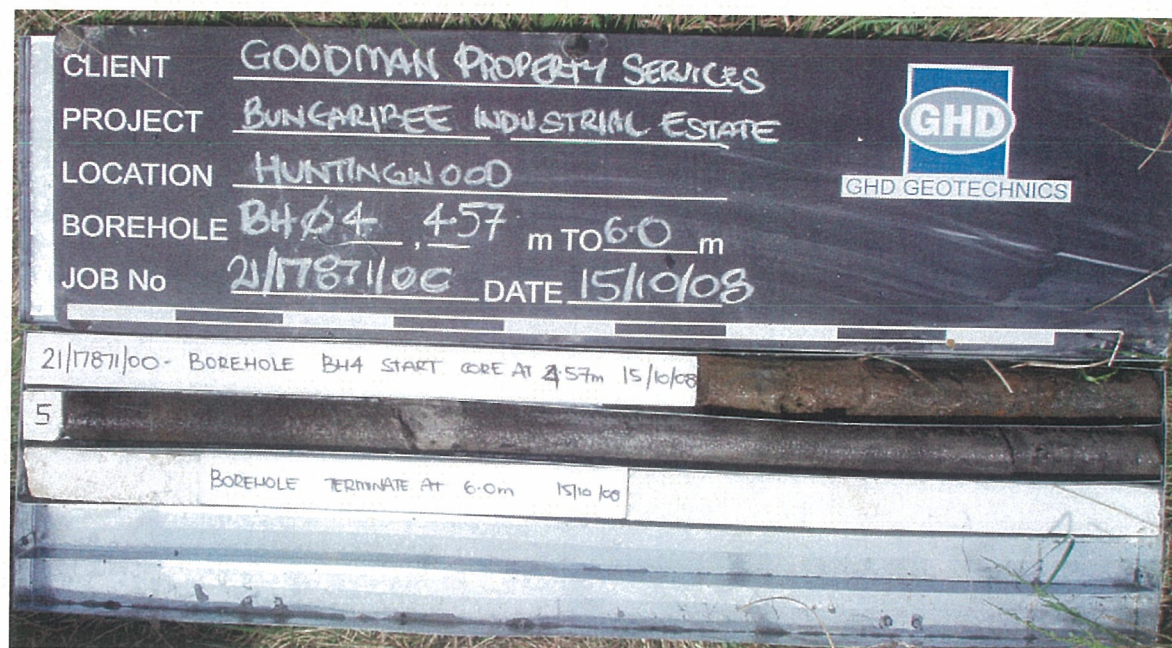 CLIENT GOODMAN PROPERTY SERVICES
PROJECT BUNGARIBEE INDUSTRIAL ESTATE
LOCATION HUNTINGWOOD
BOREHOLE BHØ4, 4.57 m TO 6.0 m
JOB No 21/17871/00 DATE 15/10/08
GHD
GHD GEOTECHNICS
21/17871/00- BOREHOLE BH4 START CORE AT 4.57m 15/10/08
5
BOREHOLE TERMINATE AT 6.0m 15/10/08